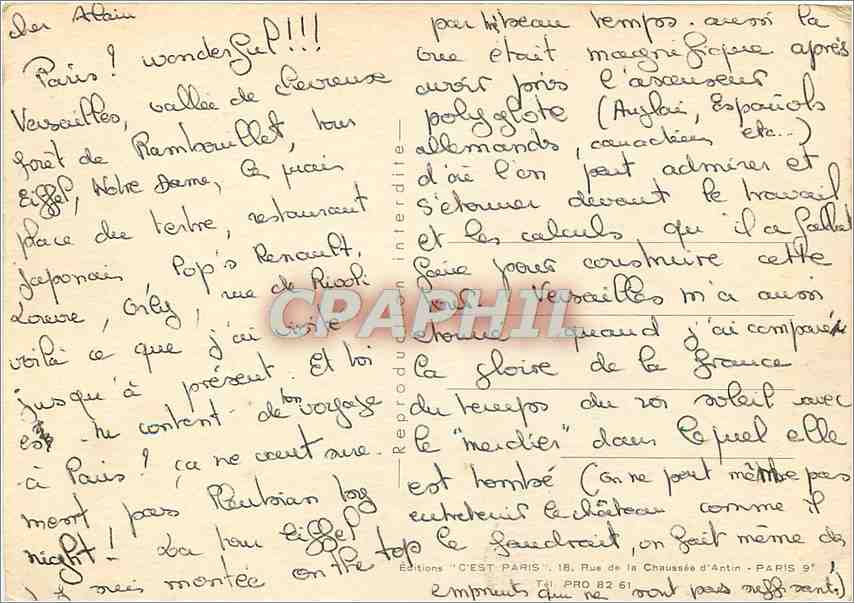 cher Alain
Paris! wonderful!!!
Versailles, vallée de chevreuse
forêt de Rambouillet, tour
Eiffel, Notre Dame, les quais
place du tertre, restaurant
japonais Pop's Renault,
Louvre, Orly, rue de Rivoli
voilà ce que j'ai visité
jusqu'à présent. Et toi
es tu content de ton voyage
à Paris? ça ne vaut sure-
ment pas
night! La tour Eiffel
suis montée on the top
par très beau temps. aussi la
vue était magnifique après
avoir pris l'ascenseur
polyglote (Anglai, Español
allemands, canadiens, etc...)
d'où l'on peut admirer et
s'étonner devant le travail
et les calculs qu'il a fallut
faire pour construire cette
tour. Versailles m'a aussi
étonné quand j'ai comparé
la gloire de la france
du temps du roi soleil avec
le "merdier" dans lequel elle
est tombé (on ne peut même pas
entretenir le château comme il
le faudrait, on fait même des
emprunts qui ne sont pas suffisants)
Reproduction interdite
Editions "C'EST PARIS", 18, Rue de la Chaussée d'Antin - PARIS 9e
Tél. PRO 82 61
CPAPHIL